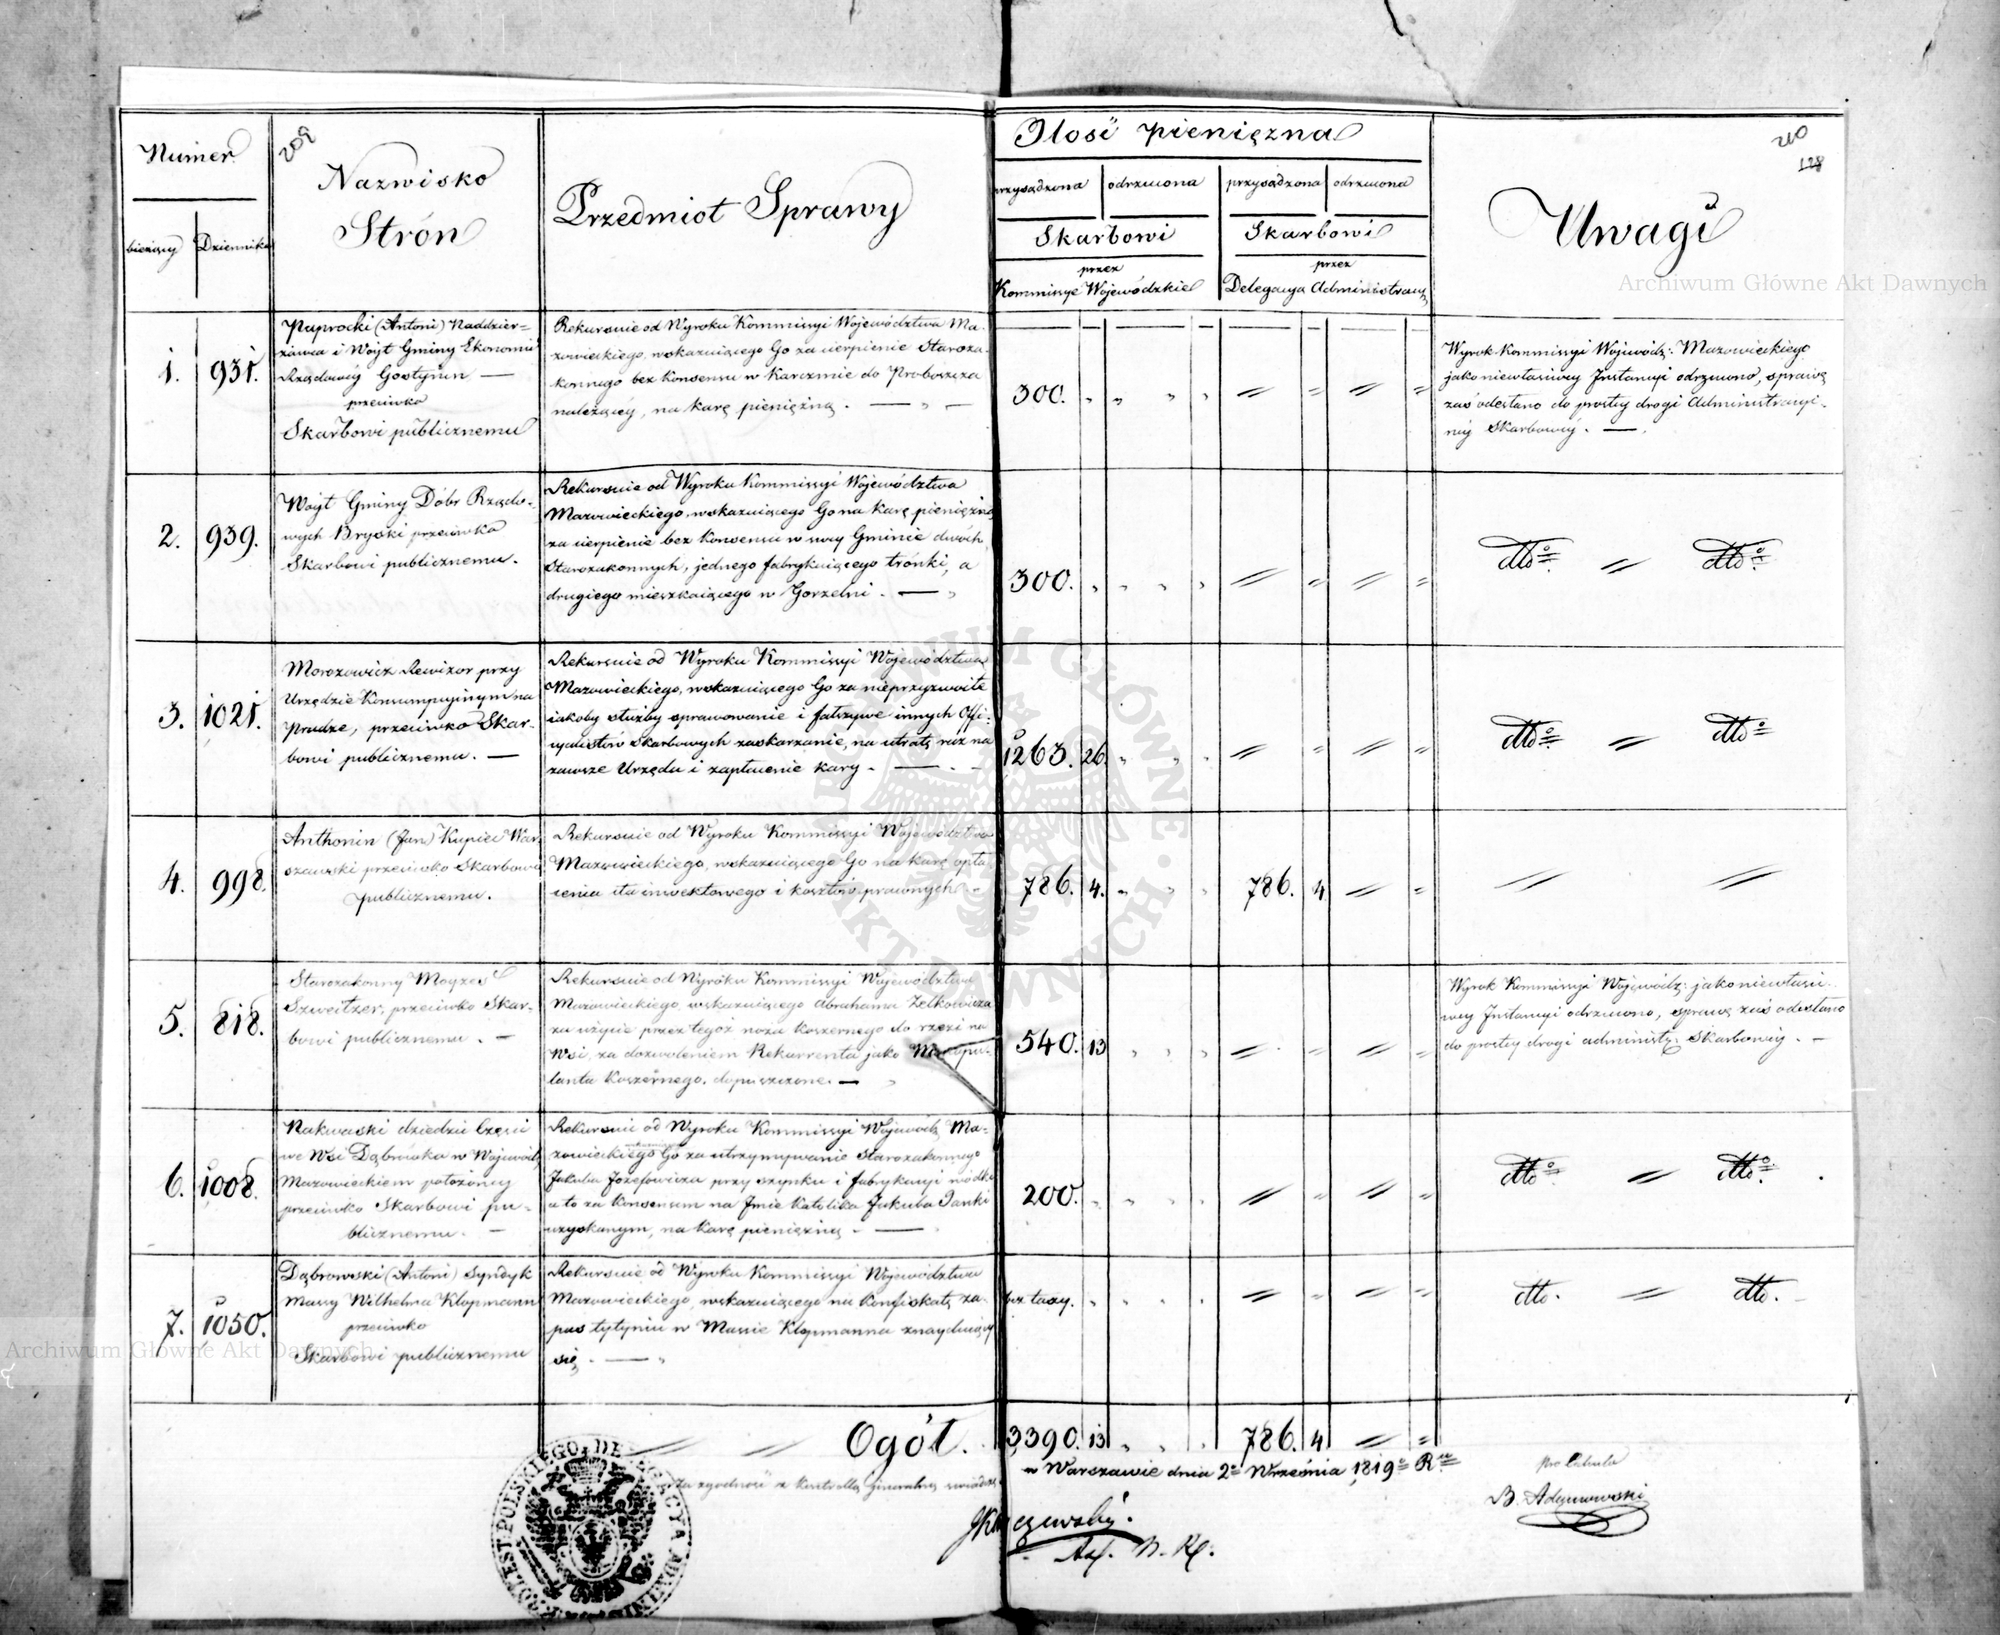 209
260
128
Numer
bieżący
Dziennika
Nazwisko
Strón
Przedmiot Sprawy
Ilość pieniężna
przysądzona
odrzucona
przysądzona
odrzucona
Skarbowi
Skarbowi
przez
przez
Kommissye Wojewódzkie
Delegacyą Administracy
Uwagi
1.
931.
Paprocki (Antoni) Naddzier=
żawca i Woyt Gminy Ekonomii
Rządowéy Gostynin —
przeciwko
Skarbowi publicznemu
Rekursuie od Wyroku Kommissyi Województwa Ma-
zowieckiego, wskazuiącego Go za cierpienie Staroza-
konnego bez Konsensu w Karczmie do Proboszcza
należącéy, na karę pieniężną. — " —
300.
Wyrok Kommissyi Wojewódz: Mazowieckiego
jako niewłaściwey Instancyi odrzucono, sprawę
zaś odesłano do prostey drogi Administracyi-
néy Skarbowéy. —
2.
939.
Woyt Gminy Dóbr Rządo-
wych Bryski przeciwko
Skarbowi publicznemu.
Rekursuie od Wyroku Kommissyi Województwa
Mazowieckiego, wskazuiącego Go na karę pieniężną
za cierpienie bez Konsensu w swey Gminie dwóch
Starozakonnych, jednego fabrykuiącego trónki, a
drugiego mieszkaiącego w Gorzelni. — "
300.
dtto = dtto
3.
1021.
Morozowicz Rewizor przy
Urzędzie Konsumpcyinym na
Pradze, przeciwko Skar-
bowi publicznemu. —
Rekursuie od Wyroku Kommissyi Województwa
Mazowieckiego, wskazuiącego Go za nieprzyzwoite
iakoby służby sprawowanie i fałszywe innych Offi-
cyalistów skarbowych zaskarzanie, na utratę raz na
zawsze Urzędu i zapłacenie kary. —
1263. 26.
dtto = dtto
4.
998.
Anthonin (Jan) Kupiec War-
szawski przeciwko Skarbowi
publicznemu.
Rekursuie od Wyroku Kommissyi Województwa
Mazowieckiego, wskazuiącego Go na karę opła-
cenia cła inwektowego i kosztów prawnych
786. 4.
786. 4
5.
818.
Starozakonny Moyzesz
Szweitzer, przeciwko Skar-
bowi publicznemu. —
Rekursuie od Wyroku Kommissyi Województwa
Mazowieckiego, wskazuiącego Abrahama Zelkowicza
za użycie przez tegóż noża Koszernego do rzezi na
Wsi, za dozwoleniem Rekurrenta jako
lanta Koszernego, dopuszczone. —
540. 13
Wyrok Kommissyi Wojewódz: jako niewłaści-
wey Instancyi odrzucono, sprawę zaś odesłano
do prostey drogi administ: Skarbowéy. —
6.
1008.
Nakwaski dziedzic Części
we Wsi Dąbrówka w Wojewódz
Mazowieckiem położonéy
przeciwko Skarbowi pu-
blicznemu. —
Rekursuie od Wyroku Kommissyi Wojewódz Ma-
zowieckiego Go za utrzymywanie Starozakonnego
Jakuba Jozefowicza przy szynku i fabrykacyi wódki
a to za Konsensem na Jmie Katolika Jakuba Janki
uzyskanym, na karę pieniężną. —
200.
dtto = dtto
7.
1050.
Dąbrowski (Antoni) Syndyk
Massy Wilhelma Klopmann
przeciwko
Skarbowi publicznemu
Rekursuie od Wyroku Kommissyi Województwa
Mazowieckiego, wskazuiącego na Konfiskatę za-
pas tytyniu w Massie Klopmanna znayduiący
się. — "
bez taxy.
dtto. = dtto.
Ogół.
3390. 13
786. 4
Za zgodność z Kontrollą Generalną świadczę
w Warszawie dnia 2o Września 1819o Rku
pro Cura
B. Adynowski
Archiwum Główne Akt Dawnych
Archiwum Główne Akt Dawnych
ARCHIWUM GŁÓWNE AKT DAWNYCH